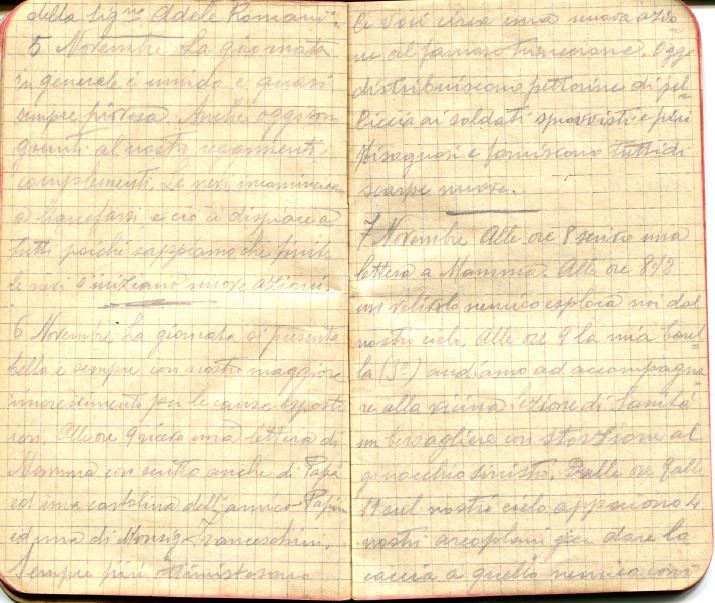 della Sig.na Adele Romani".
5 Novembre La giornata
in generale è umida e quasi
sempre piovosa. Anche oggi son
giunti al nostro reggimento i
complementi. Le nevi incominciano
a liquefarsi, e ciò ci dispiace a
tutti perché sappiamo che finite
le nevi s'iniziano nuove azioni.
6 Novembre La giornata si presenta
bella e sempre con nostro maggiore
rincrescimento per le cause esposte
ieri. Alle ore 9 ricevo una lettera di
Mamma con scritto anche di Papà
ed una cartolina dell'amico
ed una di Monsig. Franceschini.
Sempre più
le voci circa una nuova azio
ne al famoso . Oggi
distribuiscono pettorine di pel=
liccia ai soldati sprovvisti e più
bisognosi e forniscono tutti di
scarpe nuove.
7 Novembre Alle ore 8 scrivo una
lettera a Mamma. Alle ore 8 1/2
un velivolo nemico esplora noi dal
nostro cielo. Alle ore 9 la mia barel
la (3a) andiamo ad accompagna=
re alla vicina Sezione di Sanità
un bersagliere con storzione al
ginocchio sinistro. Dalle ore 9 alle
11 sul nostro cielo appaiono 4
nostri areoplani per dare la
caccia a quello nemico